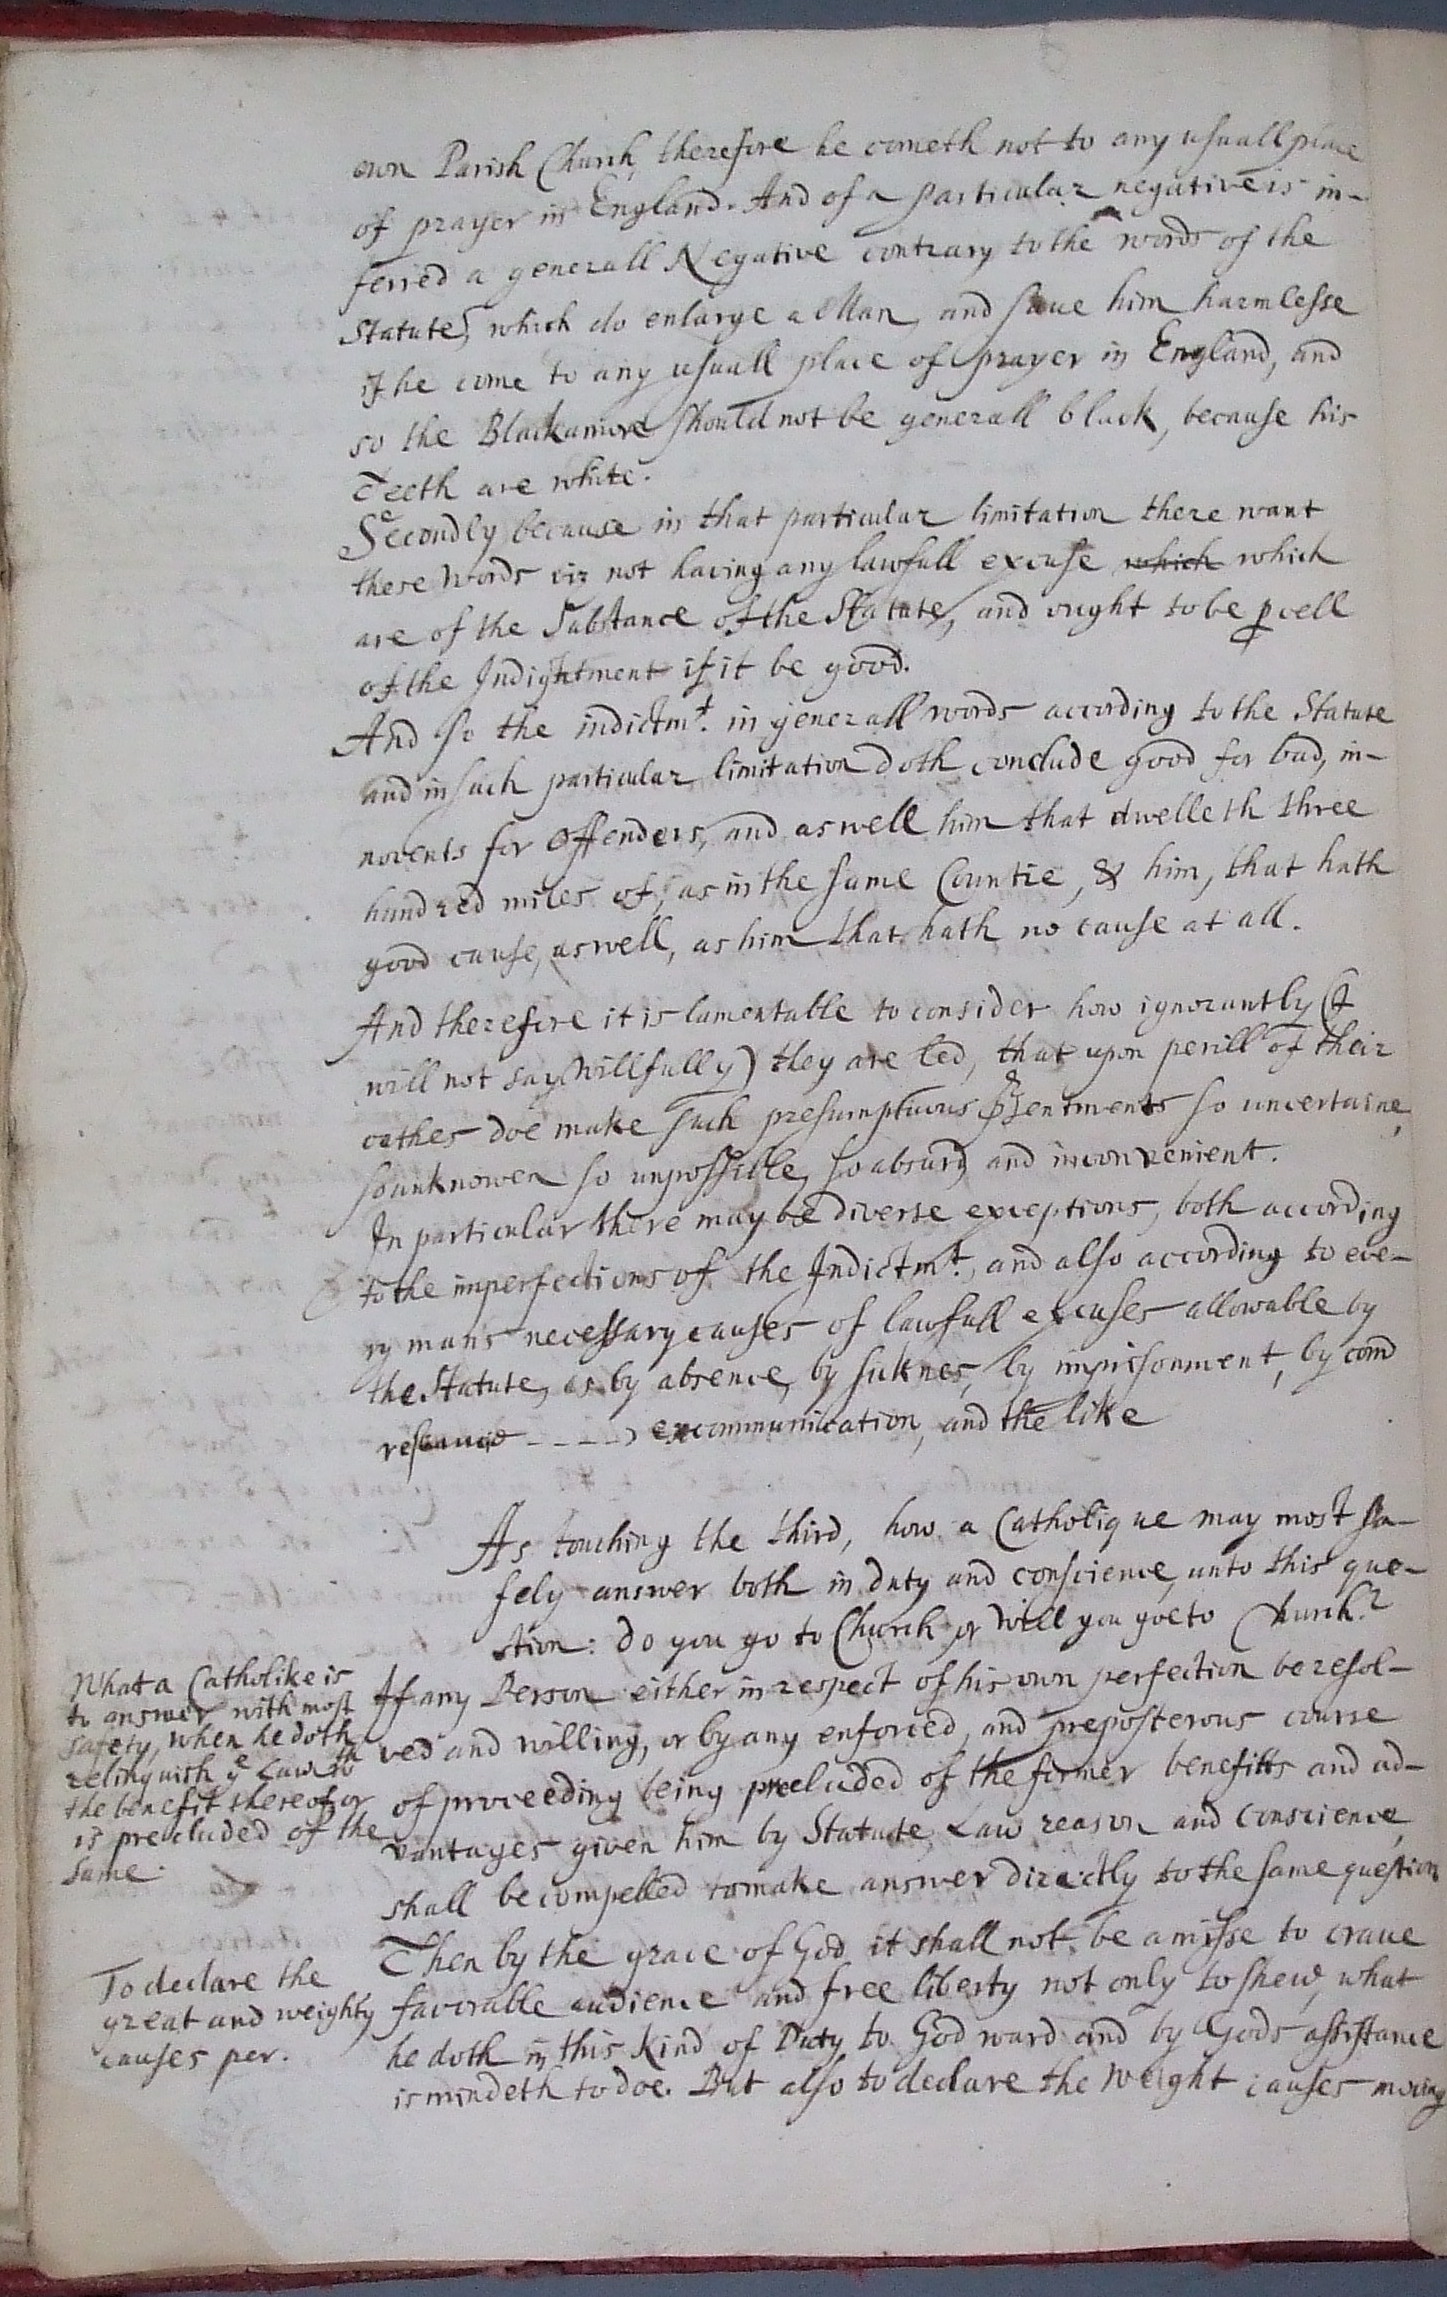 own Parish Church, therefore he cometh not to any usuall place
of prayer in England. And of a particular negative is in-
ferred a generall Negative contrary to the words of the
Statute, which do enlarge a Man, and saue him harmlesse
if he come to any usuall place of prayer in England, and
so the Blackamore should not be generall black, because his
Teeth are white.
Secondly because in that particular limitation there want
these Words viz not having any lawfull excuse which which
are of the Substance of the Statute, and ought to be pcell
of the Indightment if it be good.
And so the indictmt. in generall words according to the Statute
and in such particular limitation doth conclude good for bad, in-
nocents for Offenders, and aswell him that dwelleth three
hundred miles of, as in the same Countie, & him, that hath
good cause, aswell, as him that hath no cause at all.
And therefore it is lamentable to consider how ignorantly (I
will not say Willfully) they are led, that upon perill of their
oathes doe make such presumptuous psentments so uncertaine,
so unknowen so unpossible, so absurd, and inconvenient.
In particular there may be diverse exceptions, both according
to the imperfections of the Indictmt., and also according to eve-
ry mans necessary causes of lawfull excuses allowable by
the Statute, as by absence, by sicknes, by imprisonment, by com
----) excommunication, and the like
As touching the third, how a Catholique may most sa-
fely answer both in duty and conscience, unto this que-
stion: do you go to Church or Will you goe to Church?
What a Catholike is
to answer with most
safety, when he doth
relinquish ye Law wth
the benefit thereof or
is precluded of the
same.
If any Person either in respect of his own perfection be resol-
ved and willing, or by any enforced, and preposterous course
of proceeding being precluded of the former benefitts and ad-
vantages given him by Statute, Law reason and Conscience,
shall be compelled to make answer directly to the same question
Then by the grace of God it shall not be amisse to craue
To declare the
great and weighty
causes per.
favorable audience and free liberty not only to shew, what
he doth in this kind of Duty to God ward and by Gods assistance
is mindeth to doe. But also to declare the Weight causes moving